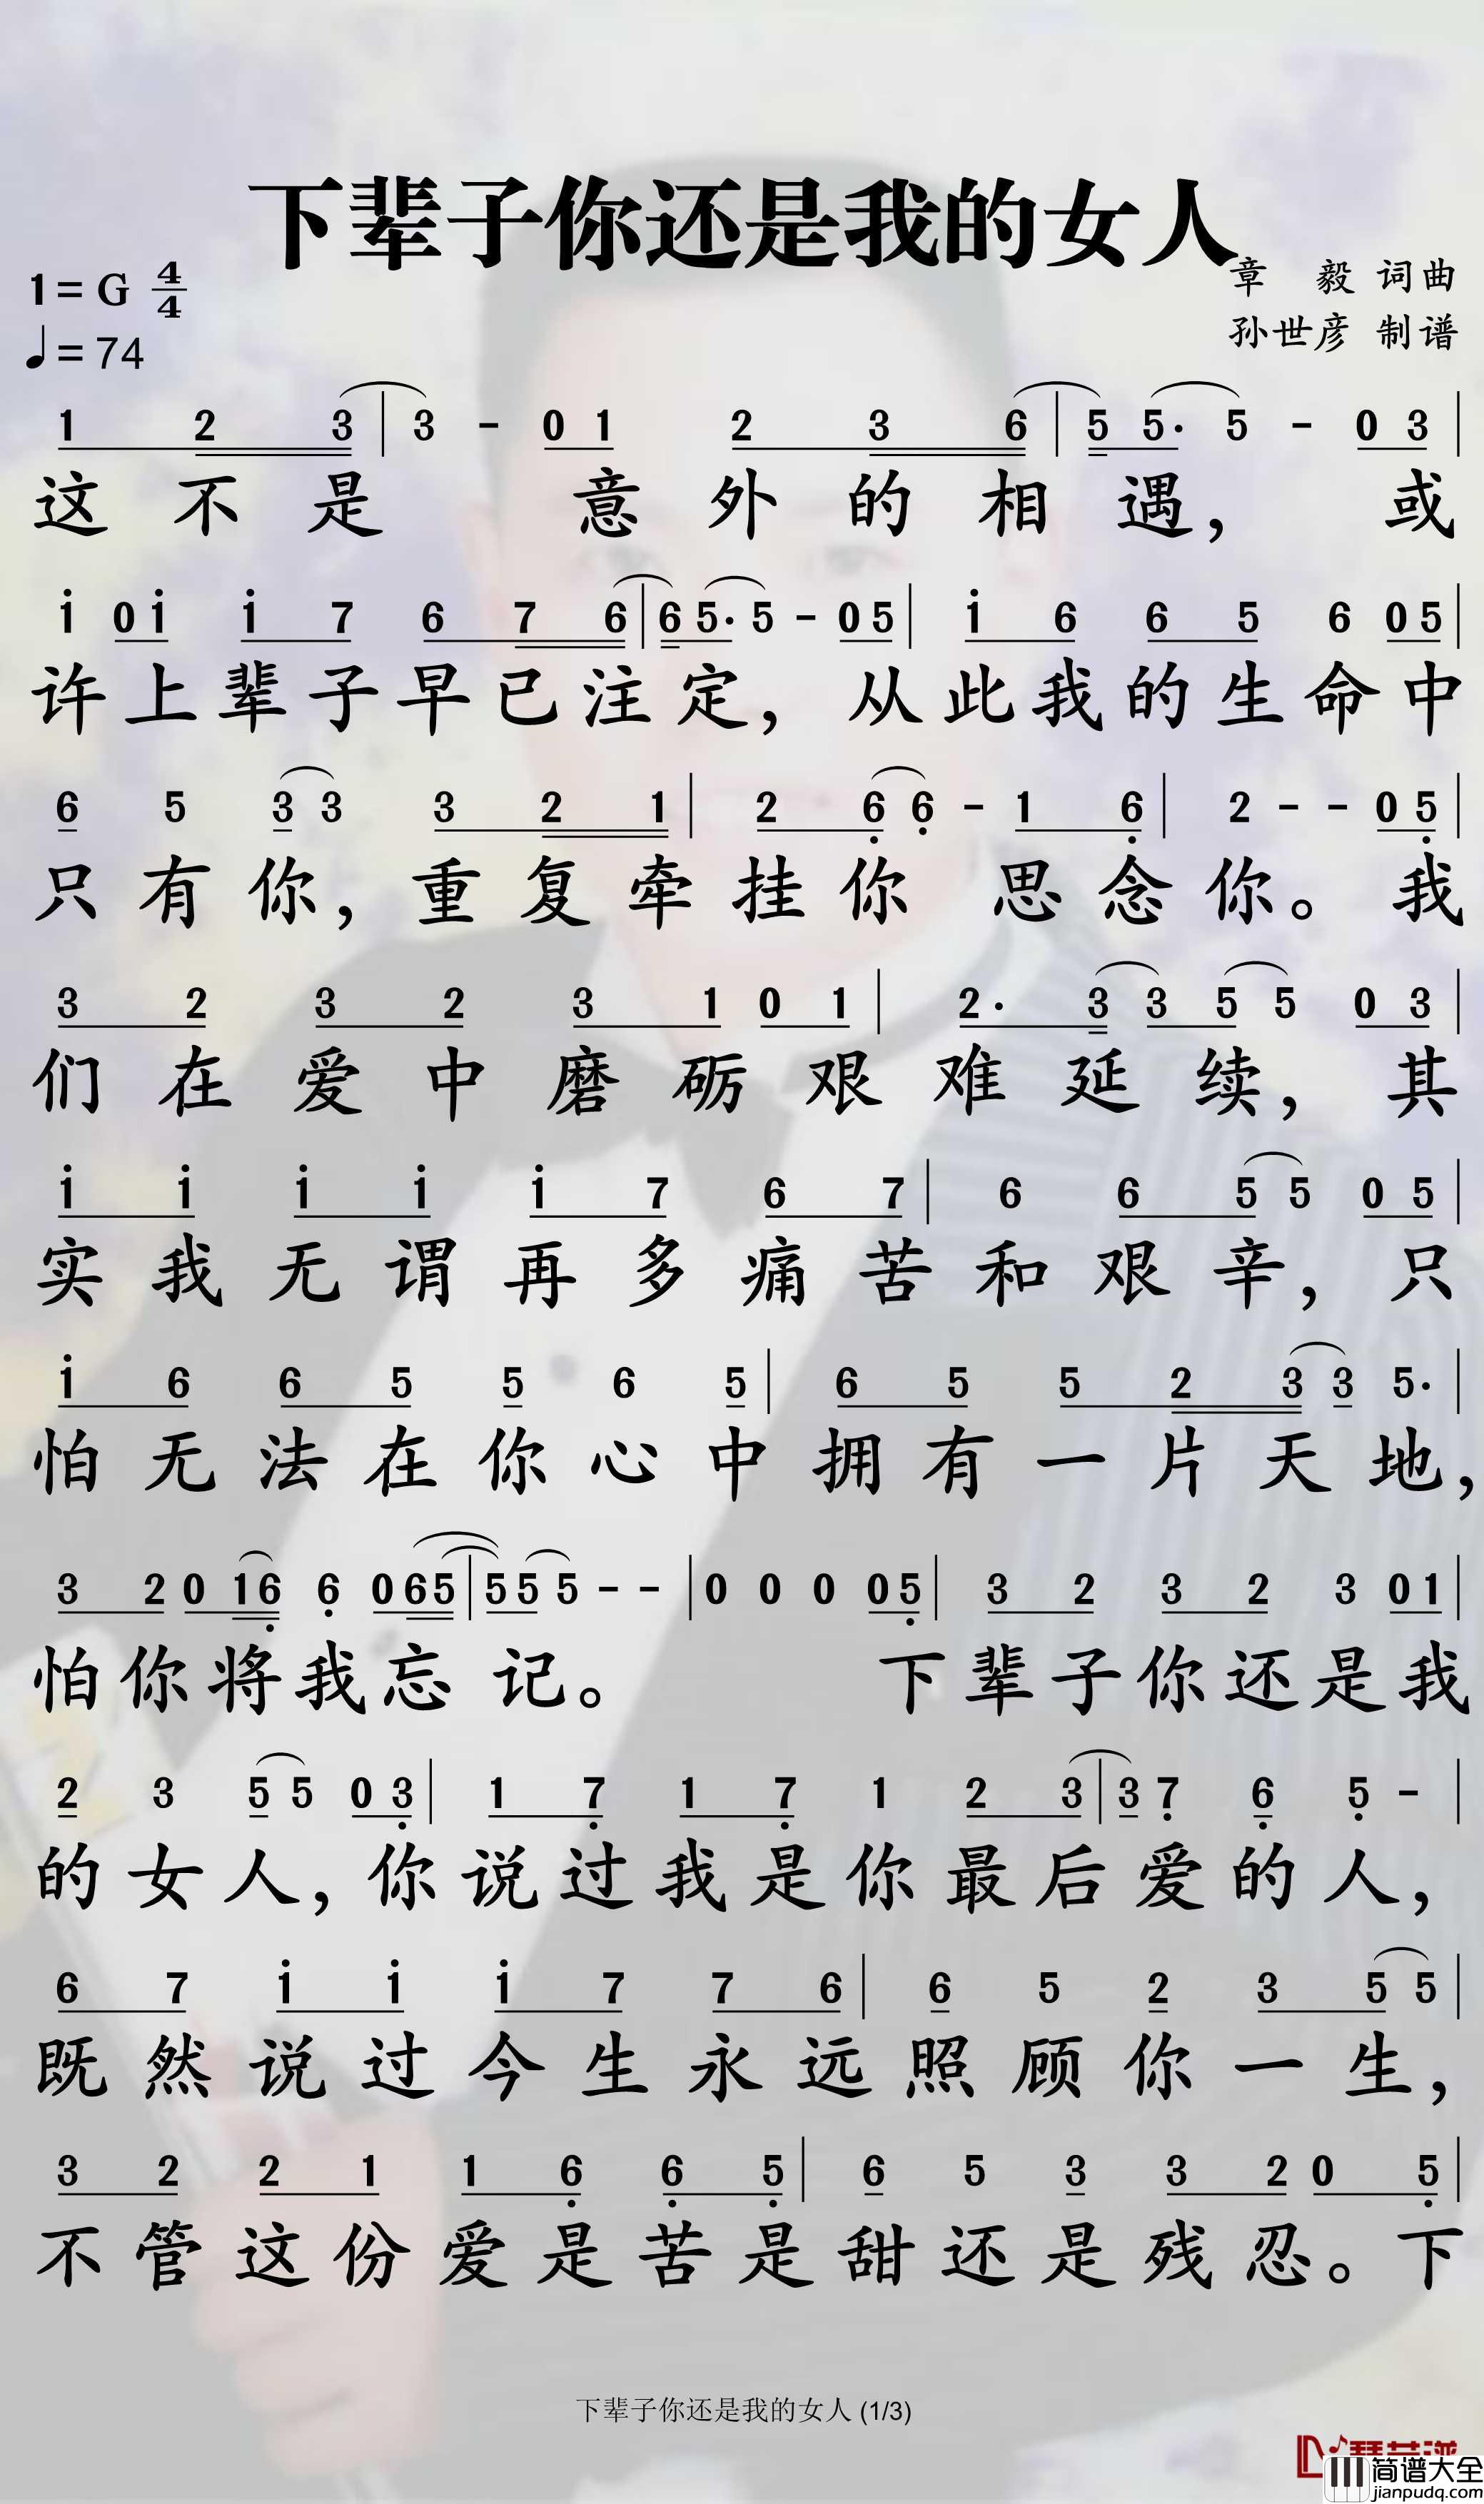 下辈子你还是我的女人
1=G 4/4
章 毅 词曲
♩=74
孙世彦 制谱
1 2 3 | 3 - 0 1 2 3 6 | 5 5· 5 - 0 3 |
这不是 意外的相遇, 或
i 0 i i 7 6 7 6 | 6 5· 5 - 0 5 | i 6 6 5 6 0 5 |
许上辈子早已注定, 从此我的生命中
6 5 3 3 3 2 1 | 2 6̣ 6̣ - 1 6̣ | 2 - - 0 5̣ |
只有你, 重复牵挂你 思念你。我
3 2 3 2 3 1 0 1 | 2· 3 3 5 5 0 3 |
们在爱中磨砺艰难延续, 其
i i i i i 7 6 7 | 6 6 5 5 0 5 |
实我无谓再多痛苦和艰辛, 只
i 6 6 5 5 6 5 | 6 5 5 2 3 3 5· |
怕无法在你心中拥有一片天地,
3 2 0 1 6̣ 6̣ 0 6 5 | 5 5 5 - - | 0 0 0 0 5̣ | 3 2 3 2 3 0 1 |
怕你将我忘记。 下辈子你还是我
2 3 5 5 0 3̣ | 1 7̣ 1 7̣ 1 2 3 | 3 7̣ 6̣ 5̣ - |
的女人, 你说过我是你最后爱的人,
6 7 i i i 7 7 6 | 6 5 2 3 5 5 |
既然说过今生永远照顾你一生,
3 2 2 1 1 6̣ 6̣ 5̣ | 6 5 3 3 2 0 5̣ |
不管这份爱是苦是甜还是残忍。下
下辈子你还是我的女人 (1/3)
简谱大全
jianpudq.com